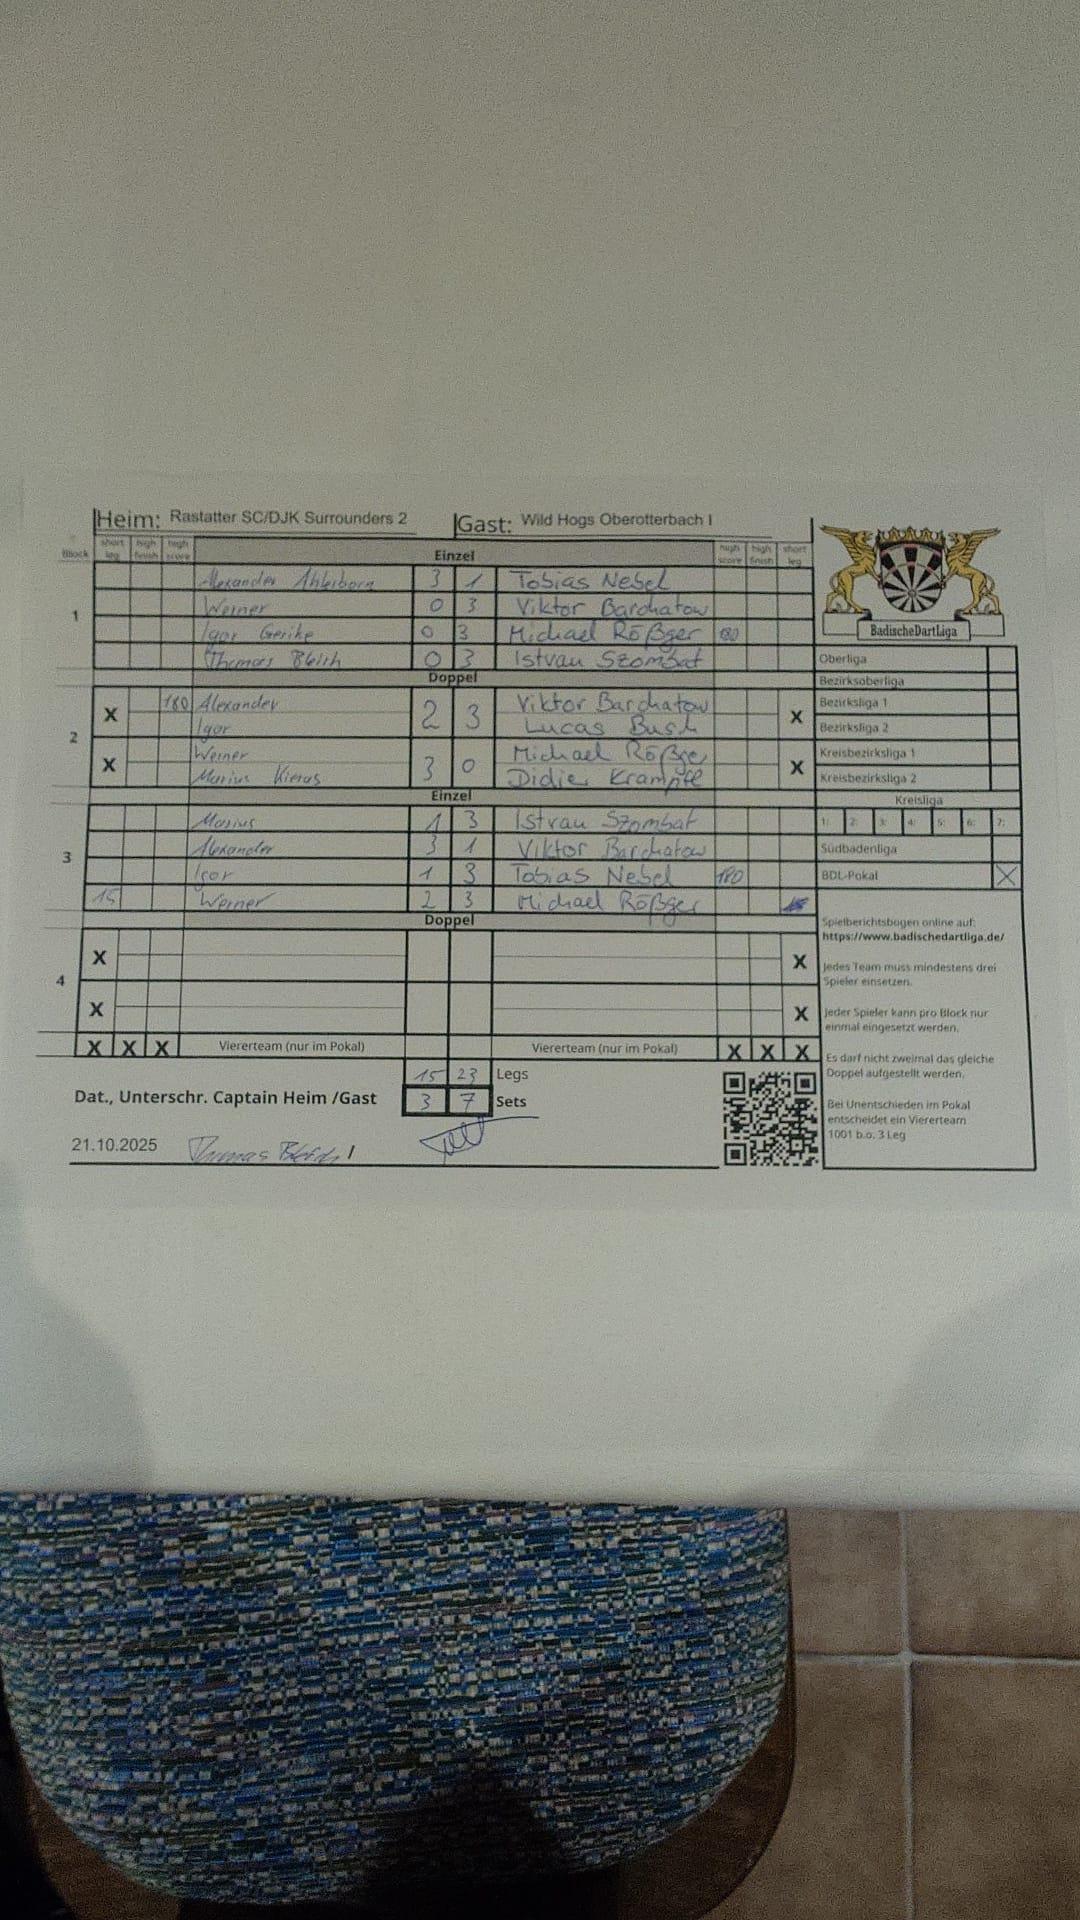 Heim: Rastatter SC/DJK Surrounders 2 Gast: Wild Hogs Oberotterbach I
Block short leg high finish high score Einzel high score high finish short leg
Alexander Ahlerborn 3 1 Tobias Nebel
1 Werner 0 3 Viktor Barchatow
Igor Gerike 0 3 Michael Rößger 180
Thomas Bleich 0 3 Istvan Szombat
Doppel
X 180 Alexander 2 3 Viktor Barchatow X
Igor Lucas Busch
2
X Werner 3 0 Michael Rößger X
Marius Didier Krampfl
Einzel
Marius 1 3 Istvan Szombat
Alexander 3 1 Viktor Barchatow
3
Igor 1 3 Tobias Nebel 180
15 Werner 2 3 Michael Rößger
Doppel
X X
4
X X
X X X Viererteam (nur im Pokal) Viererteam (nur im Pokal) X X X
15 23 Legs
Dat., Unterschr. Captain Heim /Gast 3 7 Sets
21.10.2025 Thomas Bleich /
BadischeDartLiga
Oberliga
Bezirksoberliga
Bezirksliga 1
Bezirksliga 2
Kreisbezirksliga 1
Kreisbezirksliga 2
Kreisliga
1: 2: 3: 4: 5: 6: 7:
Südbadenliga
BDL-Pokal X
Spielberichtsbogen online auf:
https://www.badischedartliga.de/
Jedes Team muss mindestens drei
Spieler einsetzen.
Jeder Spieler kann pro Block nur
einmal eingesetzt werden.
Es darf nicht zweimal das gleiche
Doppel aufgestellt werden.
Bei Unentschieden im Pokal
entscheidet ein Viererteam
1001 b.o. 3 Leg